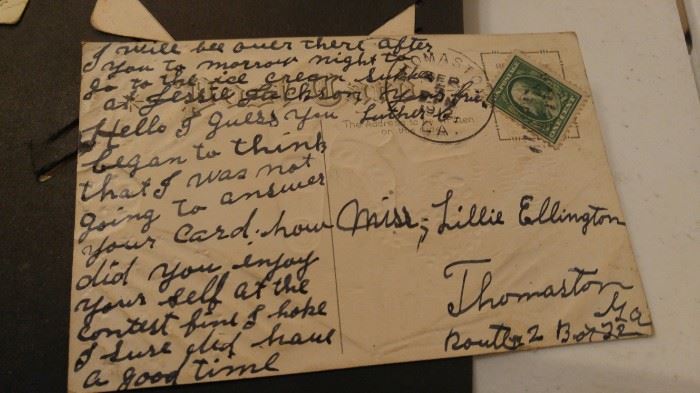 I will bee over there after
you to morrow night to
go to the ice cream supper
at Jessie Jackson
Hello I guess you
began to think
that I was not
going to answer
your card. how
did you enjoy
your self at the
contest fine I hope
I sure did have
a good time
THOMASTON
SEP
GA.
Miss, Lillie Ellington
Thomaston
Ga
Route 2 Box 32